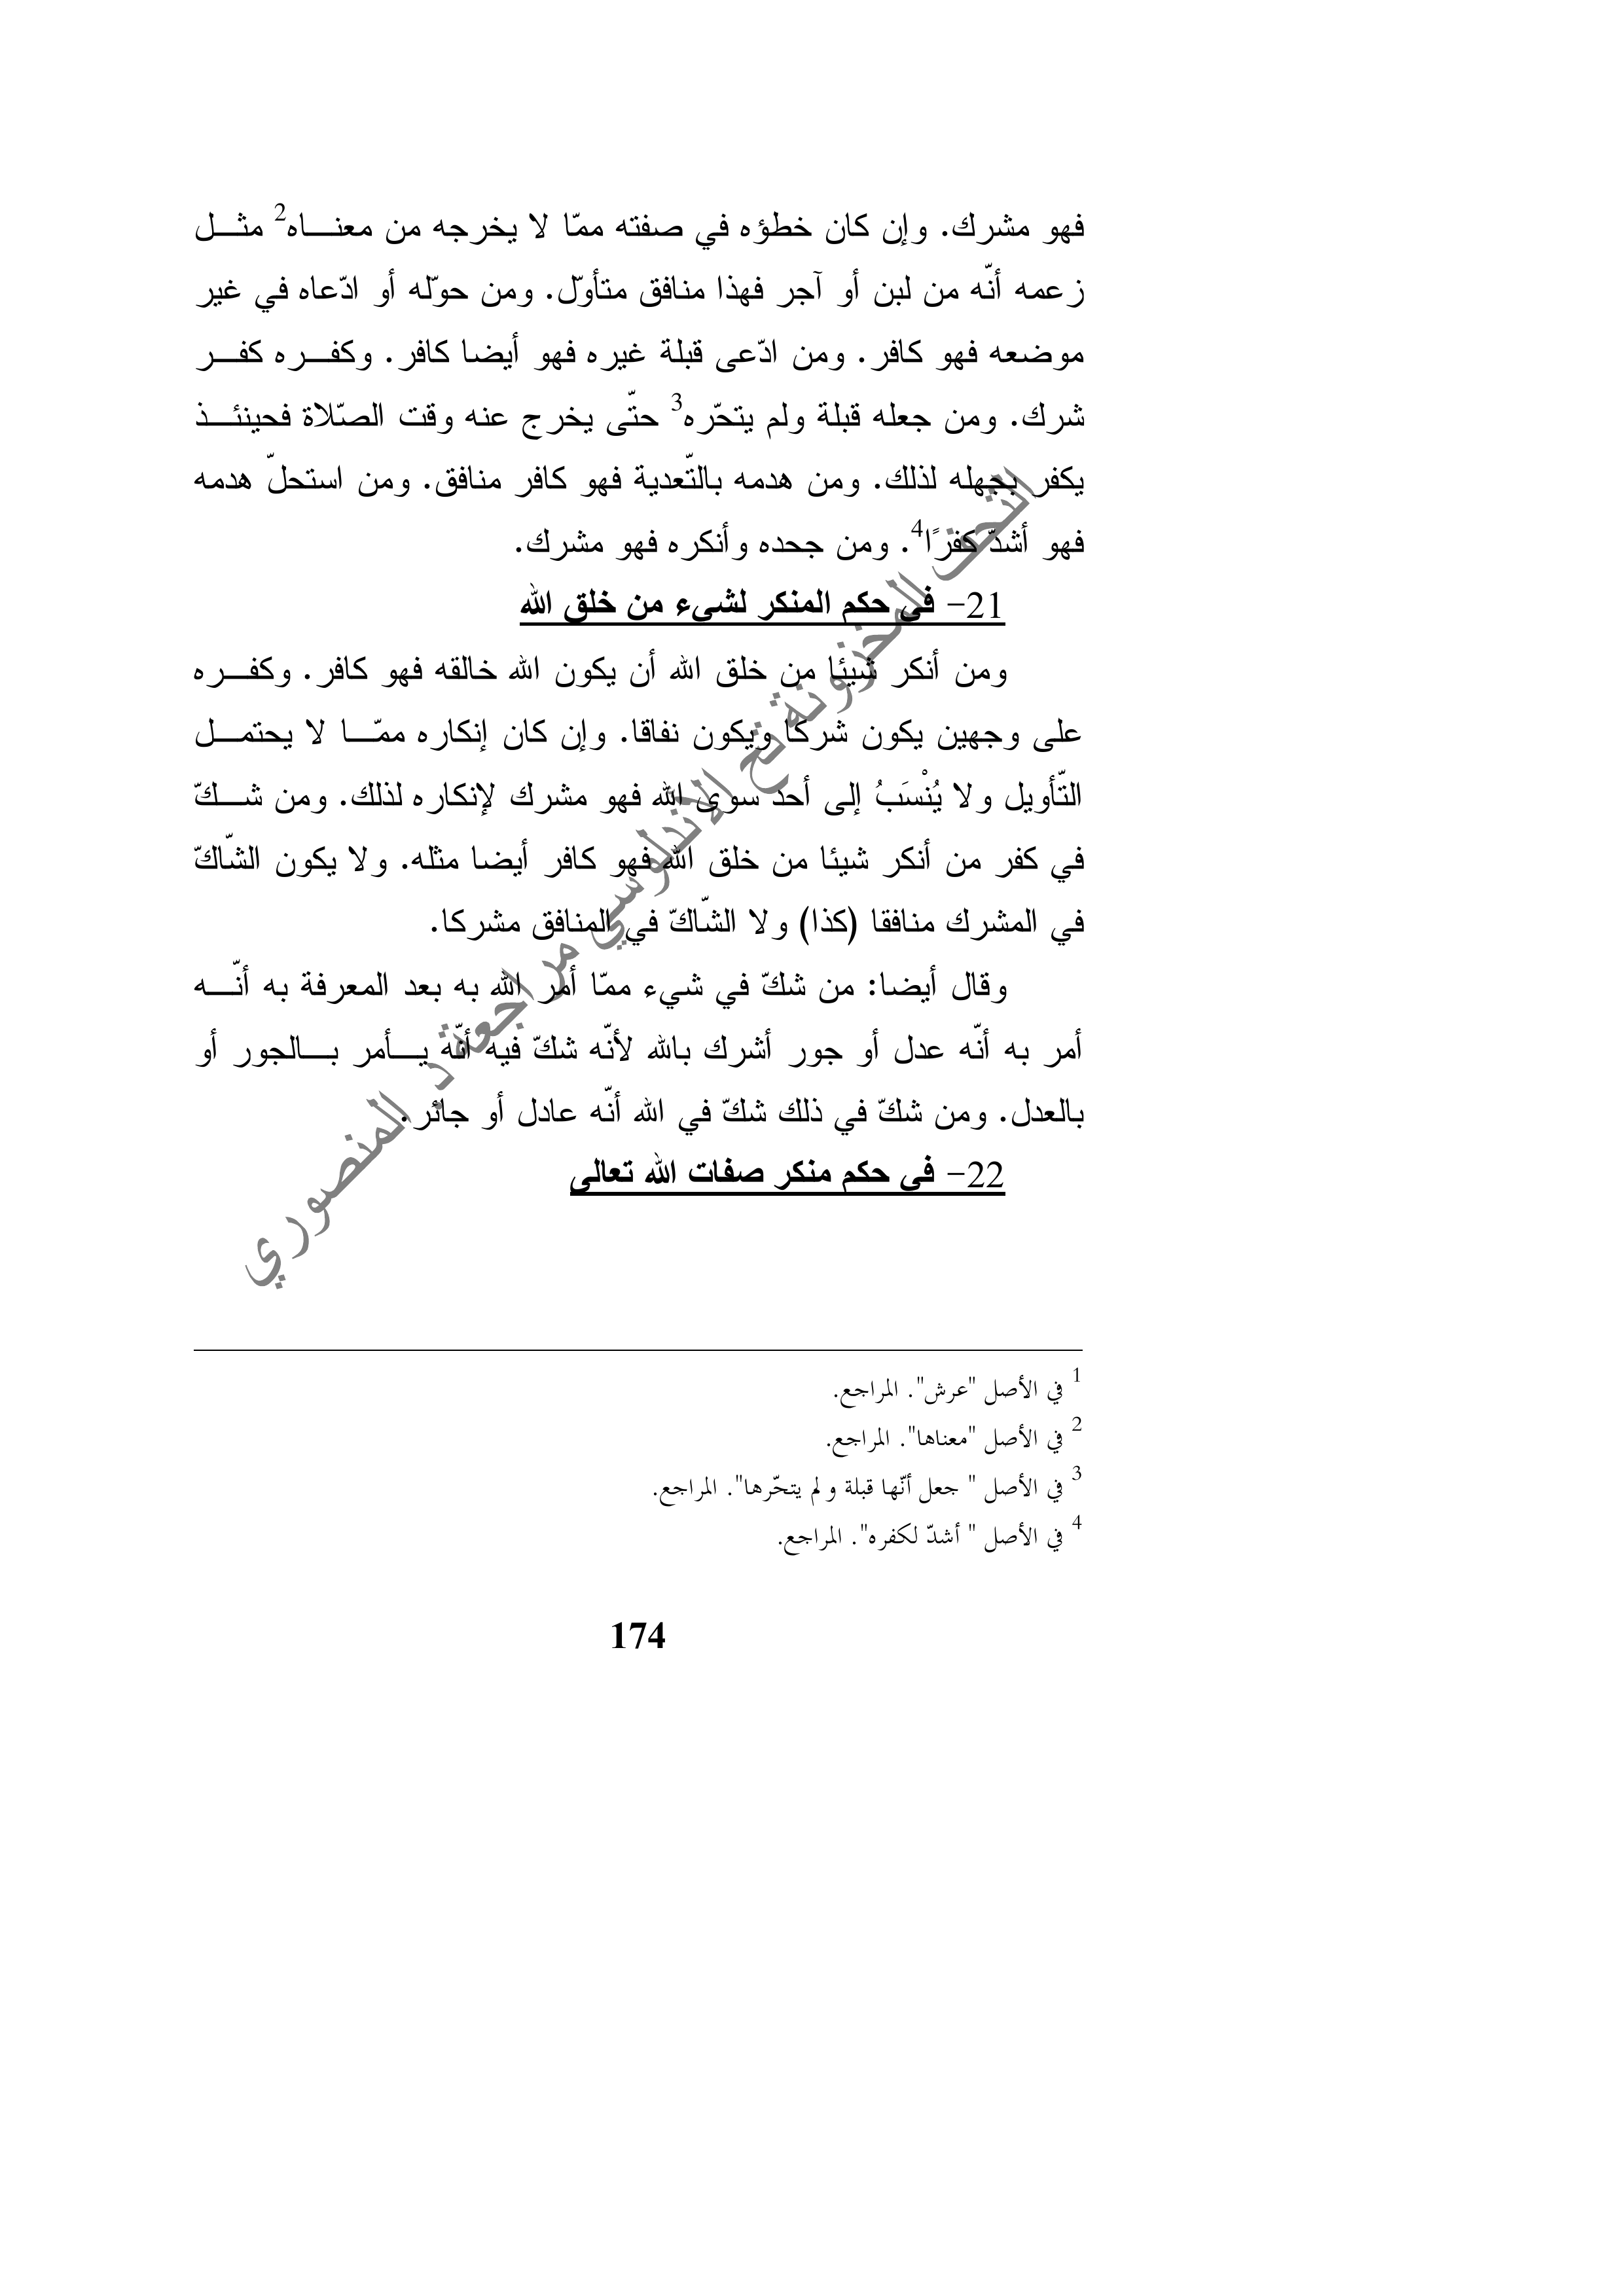 فهو مشرك. وإن كان خطؤه في صفته ممّا لا يخرجه من معنـــاه2 مثـــل
زعمه أنّه من لبن أو آجر فهذا منافق متأوّل. ومن حوّله أو ادّعاه في غير
موضعه فهو كافر. ومن ادّعى قبلة غيره فهو أيضا كافر. وكفـــره كفـــر
شرك. ومن جعله قبلة ولم يتحّره3 حتّى يخرج عنه وقت الصّلاة فحينئـــذ
يكفر بجهله لذلك. ومن هدمه بالتّعدية فهو كافر منافق. ومن استحلّ هدمه
فهو أشدّ كفرًا4. ومن جحده وأنكره فهو مشرك.
21- في حكم المنكر لشيء من خلق الله
ومن أنكر شيئا من خلق الله أن يكون الله خالقه فهو كافر. وكفـــره
على وجهين يكون شركا ويكون نفاقا. وإن كان إنكاره ممّـــا لا يحتمـــل
التّأويل ولا يُنْسَبُ إلى أحد سوى الله فهو مشرك لإنكاره لذلك. ومن شـــكّ
في كفر من أنكر شيئا من خلق الله فهو كافر أيضا مثله. ولا يكون الشّاكّ
في المشرك منافقا (كذا) ولا الشّاكّ في المنافق مشركا.
وقال أيضا: من شكّ في شيء ممّا أمر الله به بعد المعرفة به أنّـــه
أمر به أنّه عدل أو جور أشرك بالله لأنّه شكّ فيه أنّه يـــأمر بـــالجور أو
بالعدل. ومن شكّ في ذلك شكّ في الله أنّه عادل أو جائر.
22- في حكم منكر صفات الله تعالى
التحف المخزونة تح الاندلوسي مراجعة د. المنصوري
1 في الأصل "عرش". المراجع.
2 في الأصل "معناها". المراجع.
3 في الأصل " جعل أنّها قبلة و لم يتحّرها". المراجع.
4 في الأصل " أشدّ لكفره". المراجع.
174